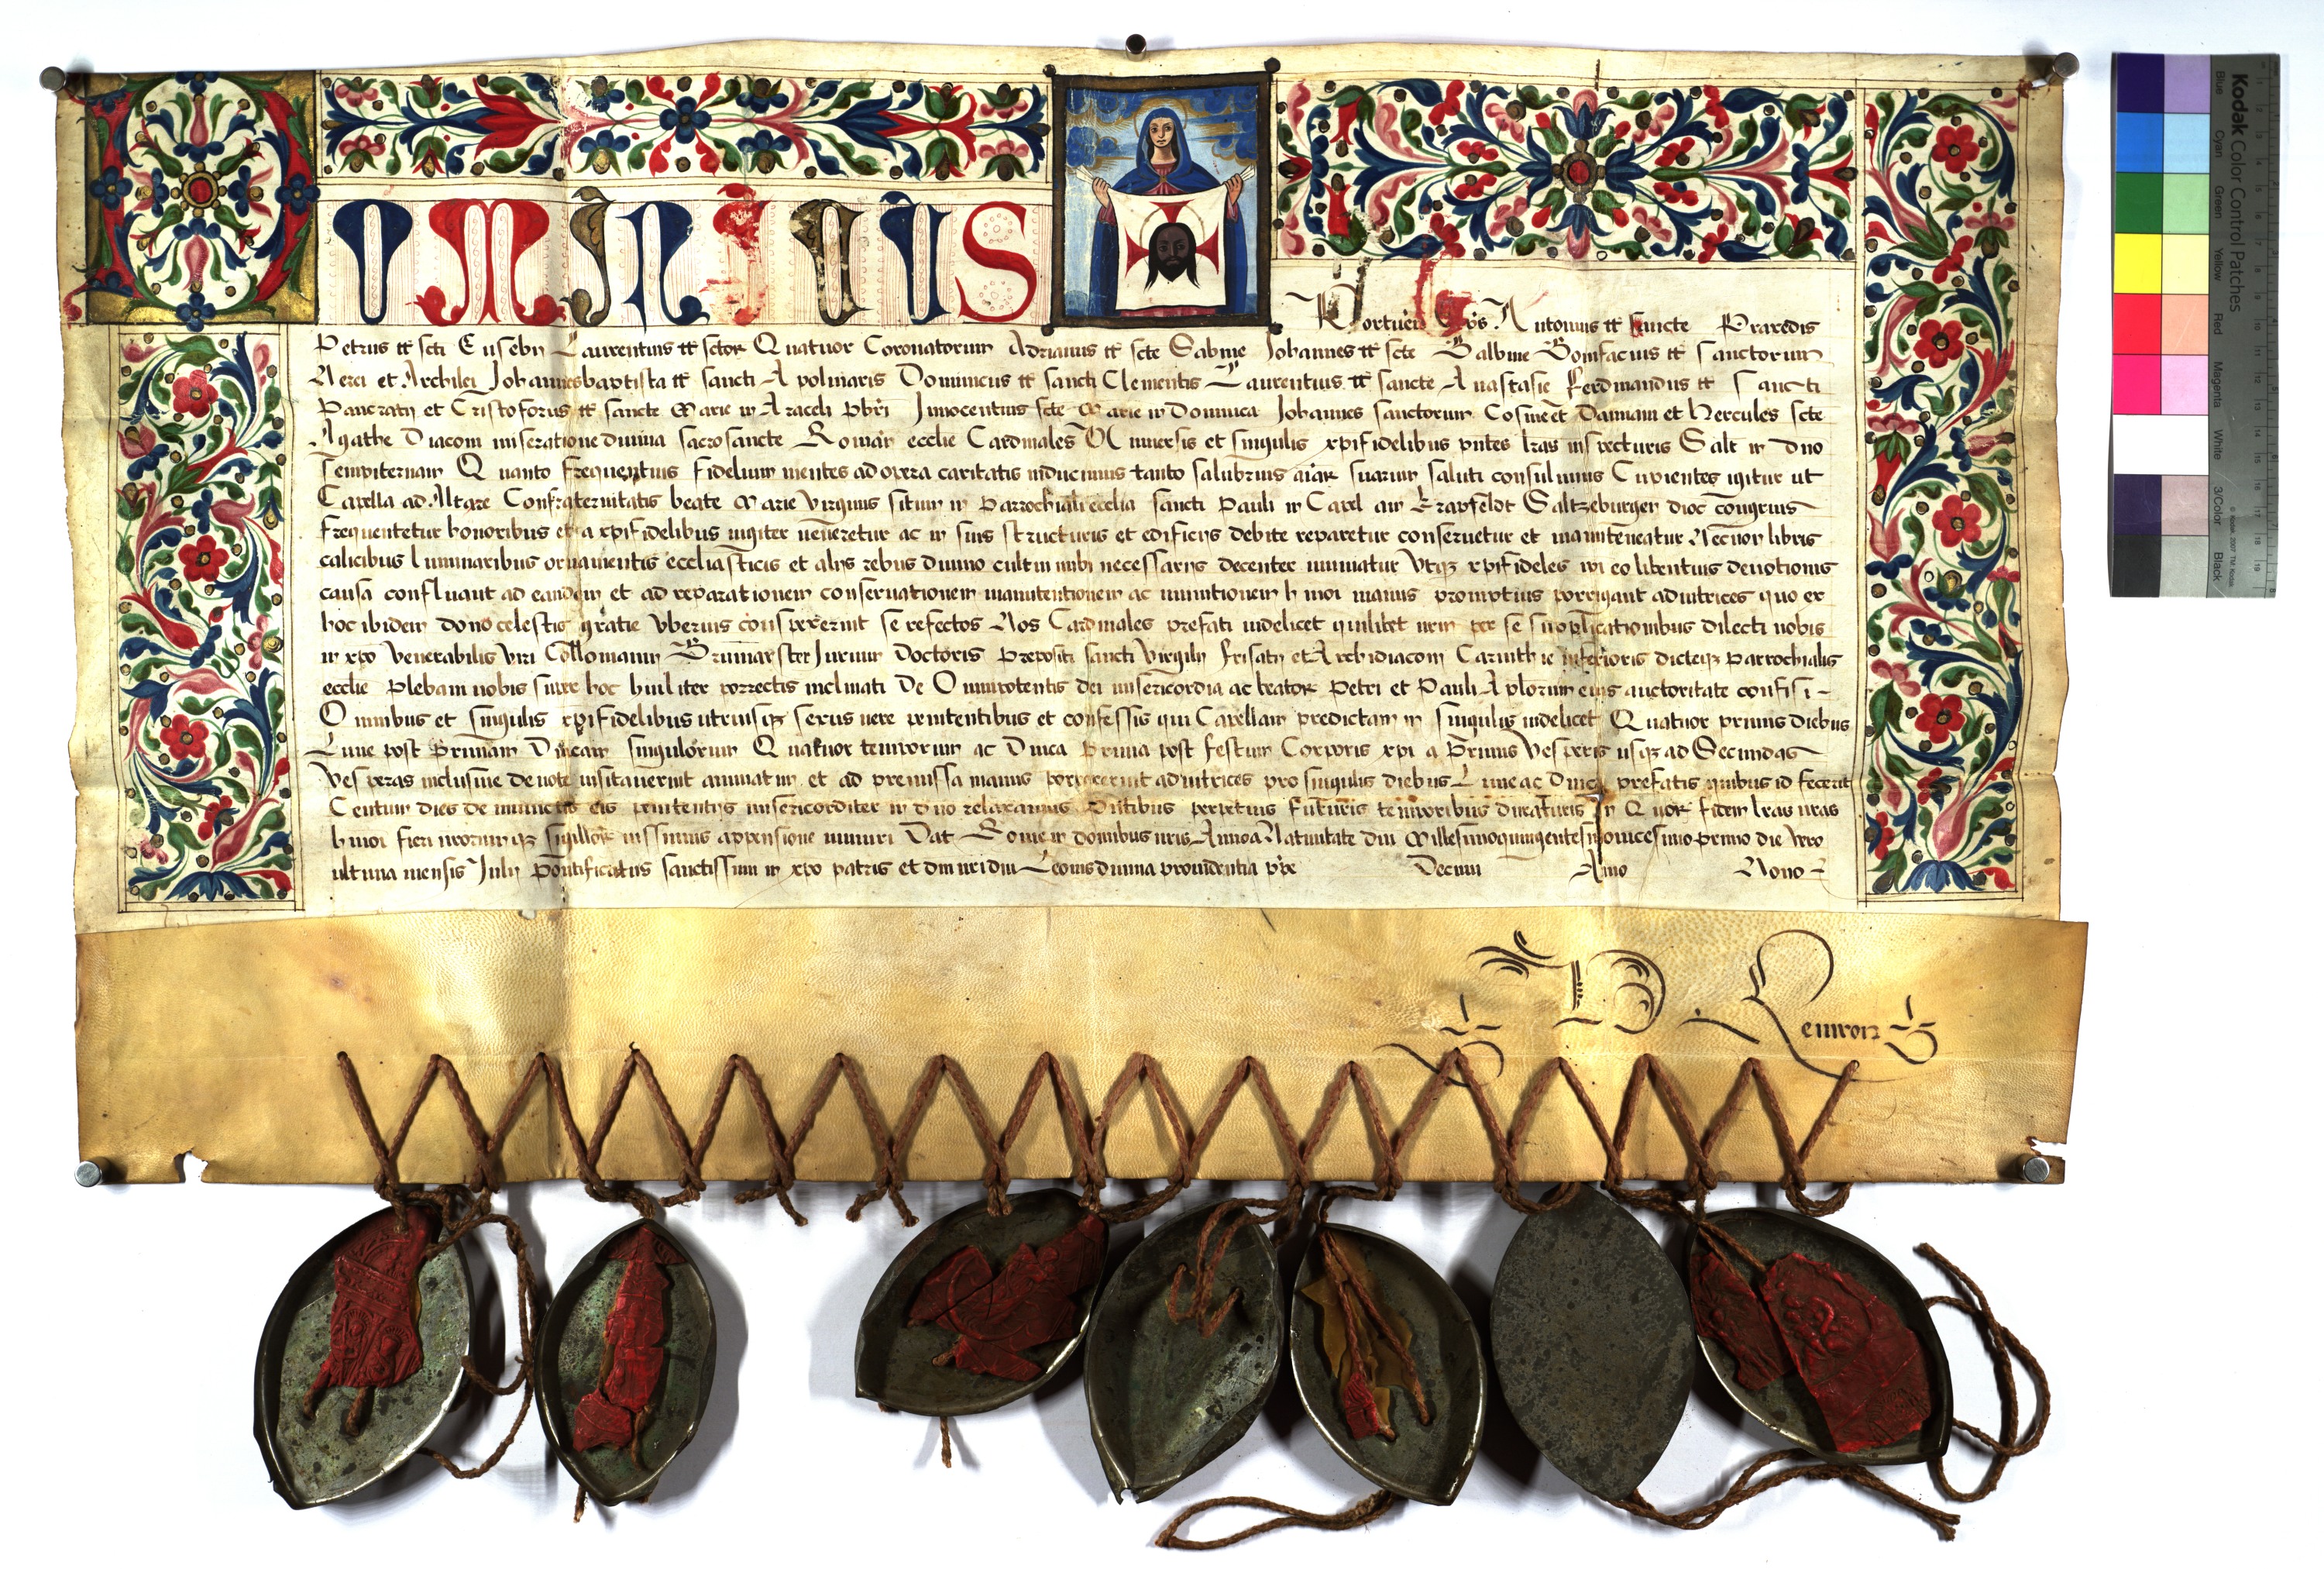 DOMINICUS
Portuen Eps Antonius tt sancte Praxedis
Petrus tt scti Eusebij Laurentius tt sctor Quatuor Coronatorum Adrianus tt scte Sabine Johannes tt scte Balbine Bonifacius tt sanctorum
Nerei et Archilei Johannesbaptista tt sancti Apolinaris Dominicus tt sancti Clementis Laurentius tt sancte Anastasie Ferdinandus tt Sancti
Pancratij et Cristoforus tt sancte Marie in Araceli pbri Innocentius scte Marie in Domnica Johannes sanctorum Cosme et Damiani et Hercules scte
Agathe Diaconi miseratione divina sacrosancte Roman ecclie Cardinales Universis et singulis xpifidelibus pntes lras inspecturis Salt in dno
sempiternam Quanto frequentius fidelium mentes ad opera caritatis inducimus tanto salubrius aiar suarum saluti consulimus Cupientes igitur ut
Capella ad Altare Confraternitatis beate Marie Virginis situm in Parrochiali ecclia sancti Pauli in Carpl am Krapfeldt Saltzeburgen dioc congruis
frequentetur honoribus et a xpifidelibus iugiter veneretur ac in suis structuris et edificijs debite reparetur conservetur et manuteneatur Necnon libris
calicibus luminaribus ornamentis ecclesiasticis et alijs rebus divino cultui inibi necessarijs decenter muniatur Utqz xpifideles ipi eo libentius devotionis
causa confluant ad eandem et ad reparationem conservationem manutentionem ac munitionem hmoi manus promptius porrigant adiutrices quo ex
hoc ibidem dono celestis gratie uberius conspexerint se refectos Nos Cardinales prefati videlicet quilibet nrm per se supplicationibus dilecti nobis
in xpo Venerabilis Viri Collomanni Brunnarster Jurium Doctoris Prepositi sancti Virgilij Frisatij et Archidiaconi Carinthie inferioris dicteqz Parrochialis
ecclie Plebani nobis super hoc huiliter porrectis inclinati De Omnipotentis dei misericordia ac beator Petri et Pauli Aplorum eius auctoritate confisi
Omnibus et singulis xpifidelibus utriusqz sexus vere penitentibus et confessis qui Capellam predictam in singulis videlicet Quatuor primis diebus
Lune post Primam Dnicam singulorum Quatuor temporum ac Dnica Prima post festum Corporis xpi a Primis Vesperis usqz ad Secundas
Vesperas inclusive devote visitaverint annuatim et ad premissa manus porrexerint adiutrices pro singulis diebus Lune ac Dnica prefatis quibus id fecerit
Centum dies de iniunctis eis penitentijs misericorditer in dno relaxamus Pntibus perpetuis futuris temporibus duraturis In Quor fidem lras nras
hmoi fieri nrorumqz sigillor iussimus appensione muniri Dat Rome in domibus nris Anno a Nativitate dni Millesimoquingentesimovicesimoprimo die vero
ultima mensis Julij Pontificatus sanctissimi in xpo patris et dni nri dni Leonis divina providentia ppe Decimi Anno Nono